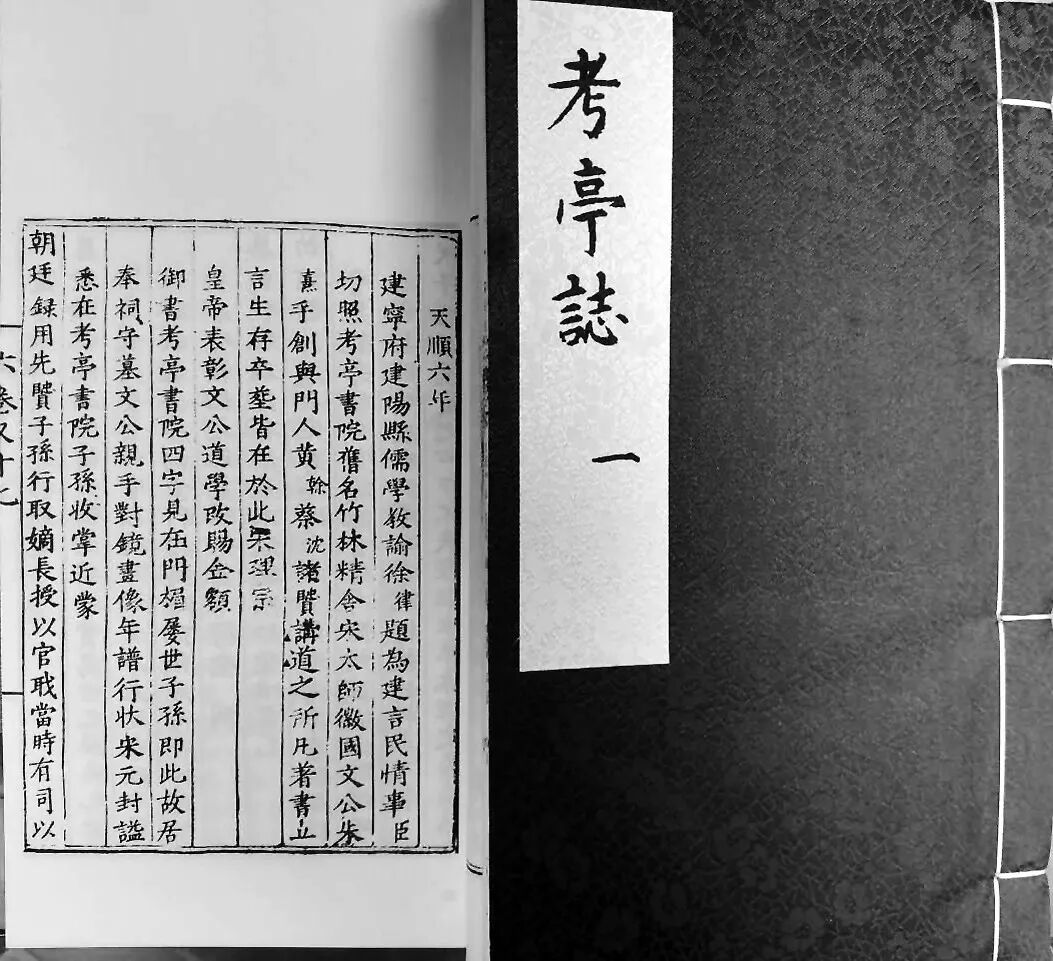 考亭誌 一
天順六年
建寧府建陽縣儒學教諭徐律題為建言民情事臣
切照考亭書院舊名竹林精舍宋太師徽國文公朱
熹手創與門人黄榦蔡沈諸賢講道之所凡著書立
言生存卒塟皆在於此宋理宗
皇帝表彰文公道學改賜金額
御書考亭書院四字見在門楣屡世子孫即此故居
奉祠守墓文公親手對鏡畫像年譜行狀宋元封謚
悉在考亭書院子孫收掌近蒙
朝廷録用先賢子孫行取嫡長授以官職當時有司以
六卷 十七